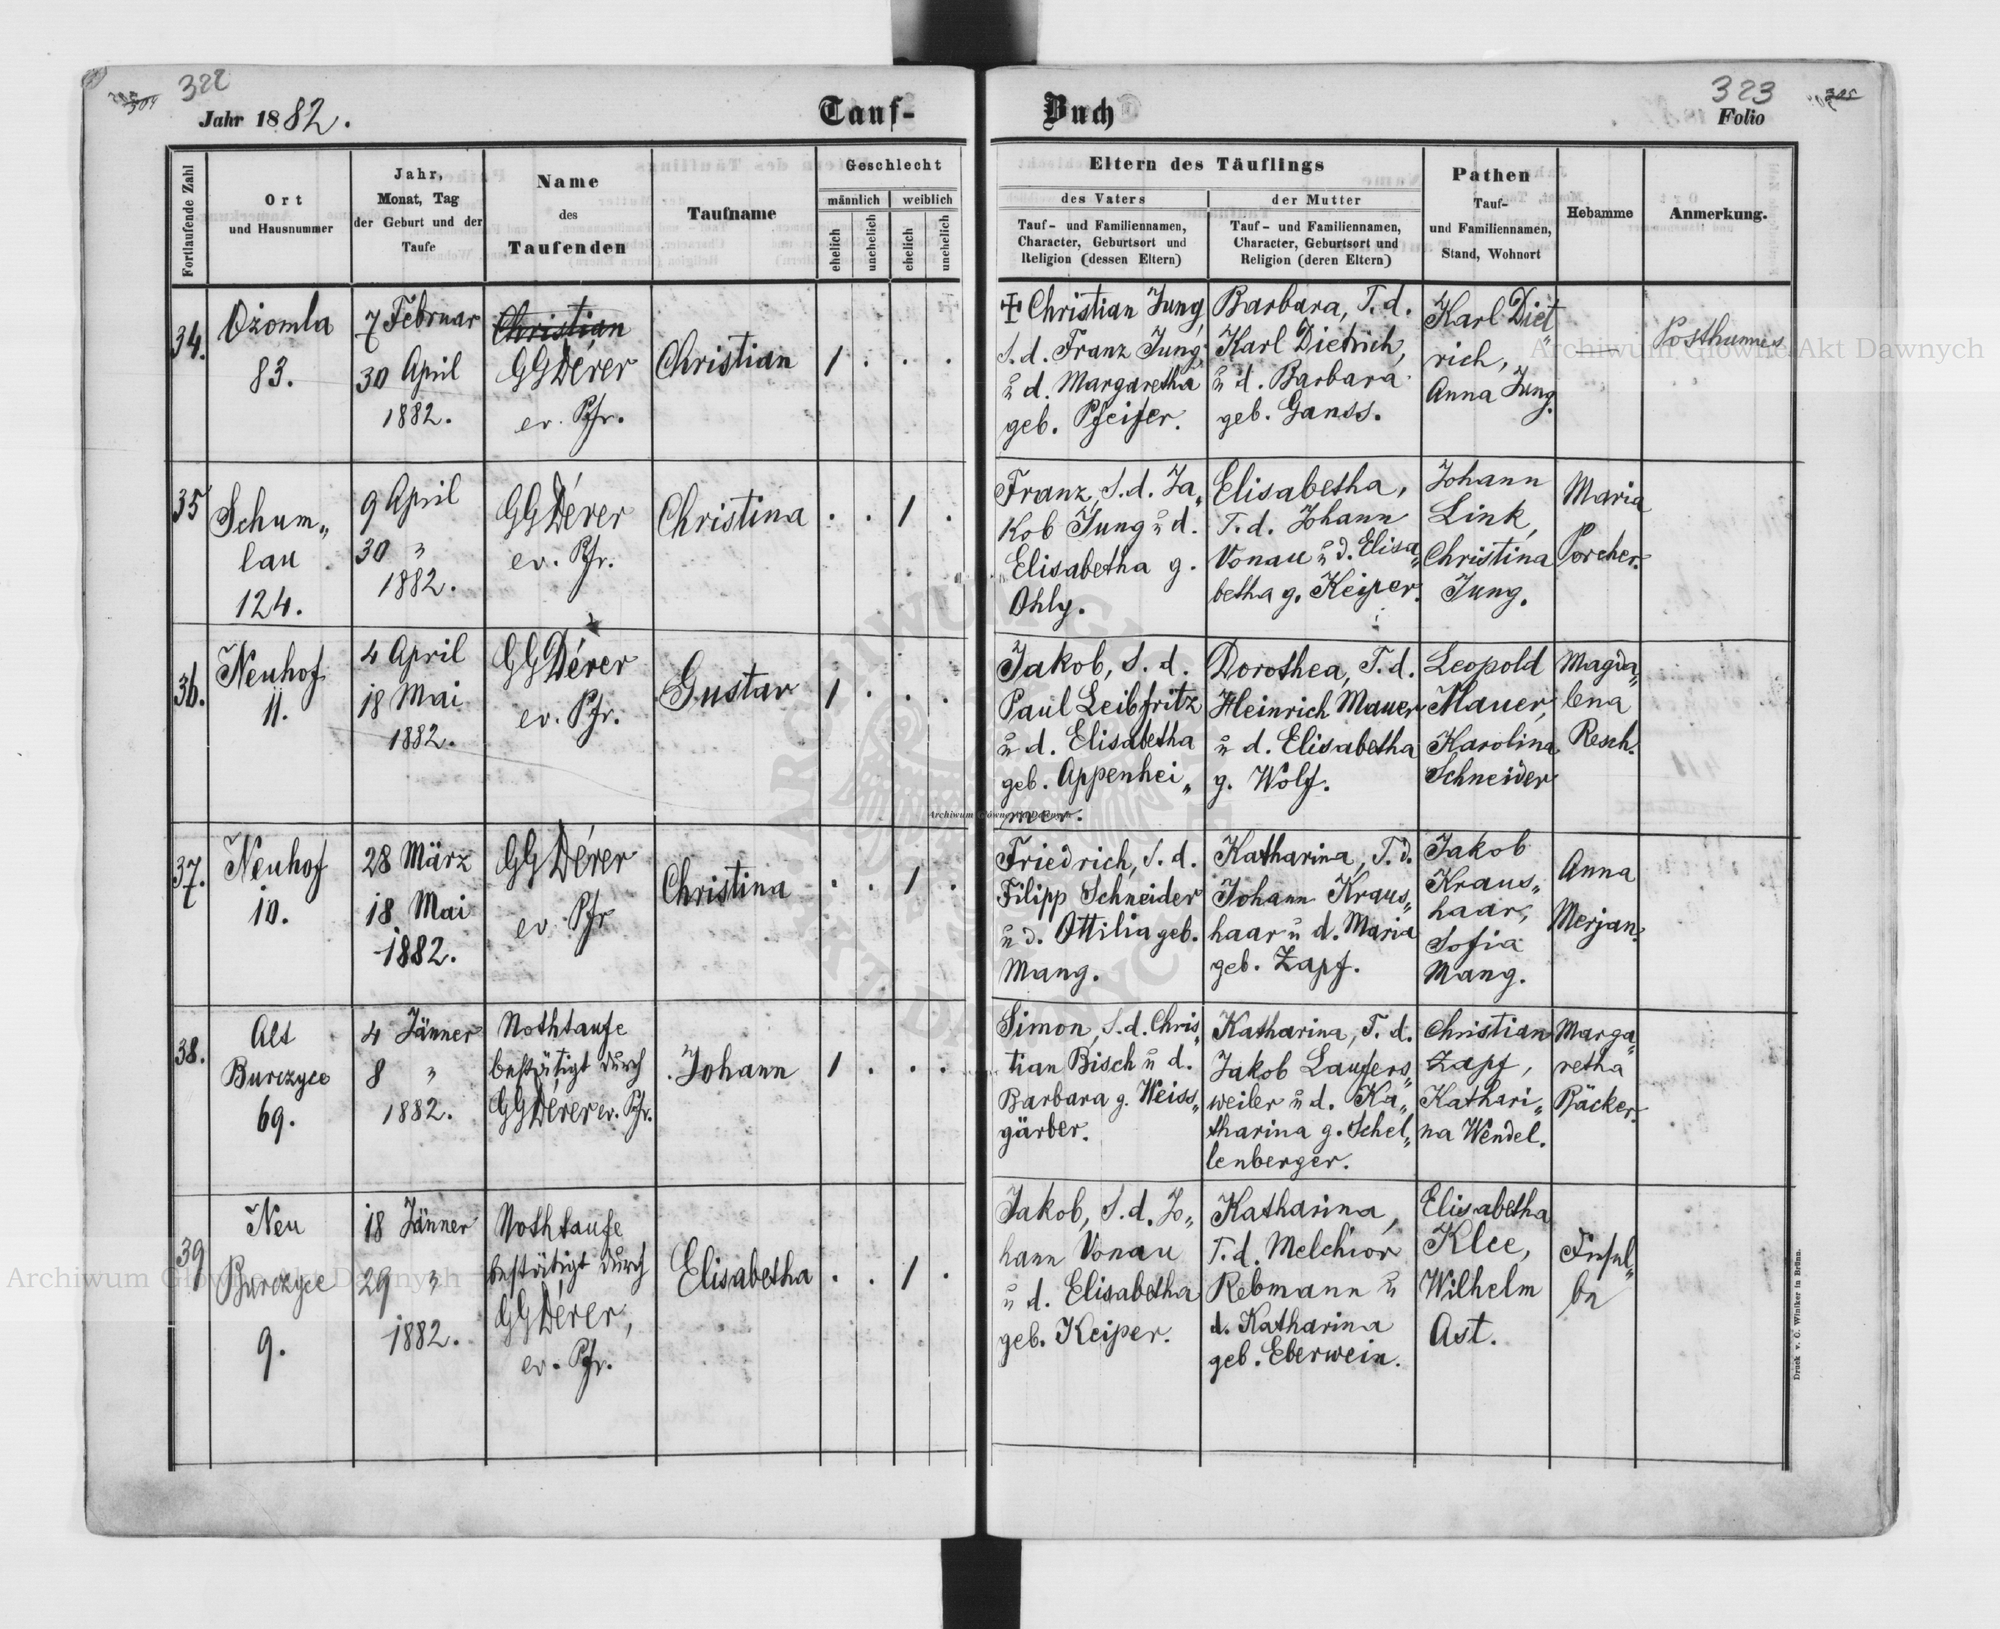 322
Jahr 1882.
Tauf-
Buch
323
Folio
Fortlaufende Zahl
Ort
und Hausnummer
Jahr,
Monat, Tag
der Geburt und der
Taufe
Name
des
Taufenden
Taufname
Geschlecht
männlich
weiblich
ehelich
unehelich
ehelich
unehelich
Eltern des Täuflings
des Vaters
Tauf- und Familiennamen,
Character, Geburtsort und
Religion (dessen Eltern)
der Mutter
Tauf- und Familiennamen,
Character, Geburtsort und
Religion (deren Eltern)
Pathen
Tauf-
und Familiennamen,
Stand, Wohnort
Hebamme
Anmerkung.
34.
Ożomla
83.
7 Februar
30 April
1882.
Christian
GGDérer
ev. Pfr.
Christian
1 . . .
+ Christian Jung,
S. d. Franz Jung,
u d. Margaretha
geb. Pfeifer.
Barbara, T. d.
Karl Dietrich,
u d. Barbara
geb. Ganss.
Karl Diet„
rich,
Anna Jung.
—
Posthumus
35
Schum„
lau
124.
9 April
30 "
1882.
GGDérer
ev. Pfr.
Christina
. . 1 .
Franz, S. d. Ja„
kob Jung u d.
Elisabetha g.
Ohly.
Elisabetha,
T. d. Johann
Vonau u d. Elisa„
betha g. Keiper.
Johann
Link,
Christina
Jung.
Maria
Porcher.
36.
Neuhof
11.
4 April
18 Mai
1882.
GGDérer
ev. Pfr.
Gustav
1 . . .
Jakob, S. d.
Paul Leibfritz
u d. Elisabetha
geb. Appenhei„
mer.
Dorothea, T. d.
Heinrich Mauer
u d. Elisabetha
g. Wolf.
Leopold
Mauer,
Karolina
Schneider
Magda„
lena
Resch.
37.
Neuhof
10.
28 März
18 Mai
1882.
GGDérer
ev. Pfr
Christina
. . 1 .
Friedrich, S. d.
Filipp Schneider
u d. Ottilia geb.
Mang.
Katharina, T. d.
Johann Kraus„
haar u d. Maria
geb. Zapf.
Jakob
Kraus„
haar,
Sofia
Mang.
Anna
Merjan.
38.
Alt
Burczyce
69.
4 Jänner
8 "
1882.
Nothtaufe
bestätigt durch
GGDérer ev. Pfr.
Johann
1 . . .
Simon, S. d. Chris„
tian Bisch u d.
Barbara g. Weiss„
gärber.
Katharina, T. d.
Jakob Laufers„
weiler u d. Ka„
tharina g. Schel„
lenberger.
Christian
Zapf,
Kathari„
na Wendel.
Marga„
retha
Bäcker.
39
Neu
Burczyce
9.
18 Jänner
29 "
1882.
Nothtaufe
bestätigt durch
GGDérer,
ev. Pfr.
Elisabetha
. . 1 .
Jakob, S. d. Jo„
hann Vonau
u d. Elisabetha
geb. Keiper.
Katharina,
T. d. Melchior
Rebmann u
d. Katharina
geb. Eberwein.
Elisabetha
Klee,
Wilhelm
Ast.
Druck v. C. Winiker in Brünn.
Archiwum Główne Akt Dawnych
Archiwum Główne Akt Dawnych
Archiwum Główne Akt Dawnych
ARCHIWUM GŁÓWNE AKT DAWNYCH